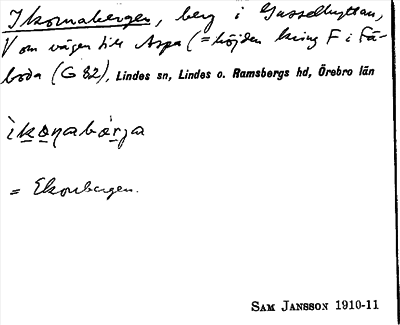 Ikornabergen, berg i Gusselhyttan,
V om vägen till Aspa (= höjden kring F i Få-
boda (G 82), Lindes sn, Lindes o. Ramsbergs hd, Örebro län
= Ekorrbergen.
SAM JANSSON 1910-11